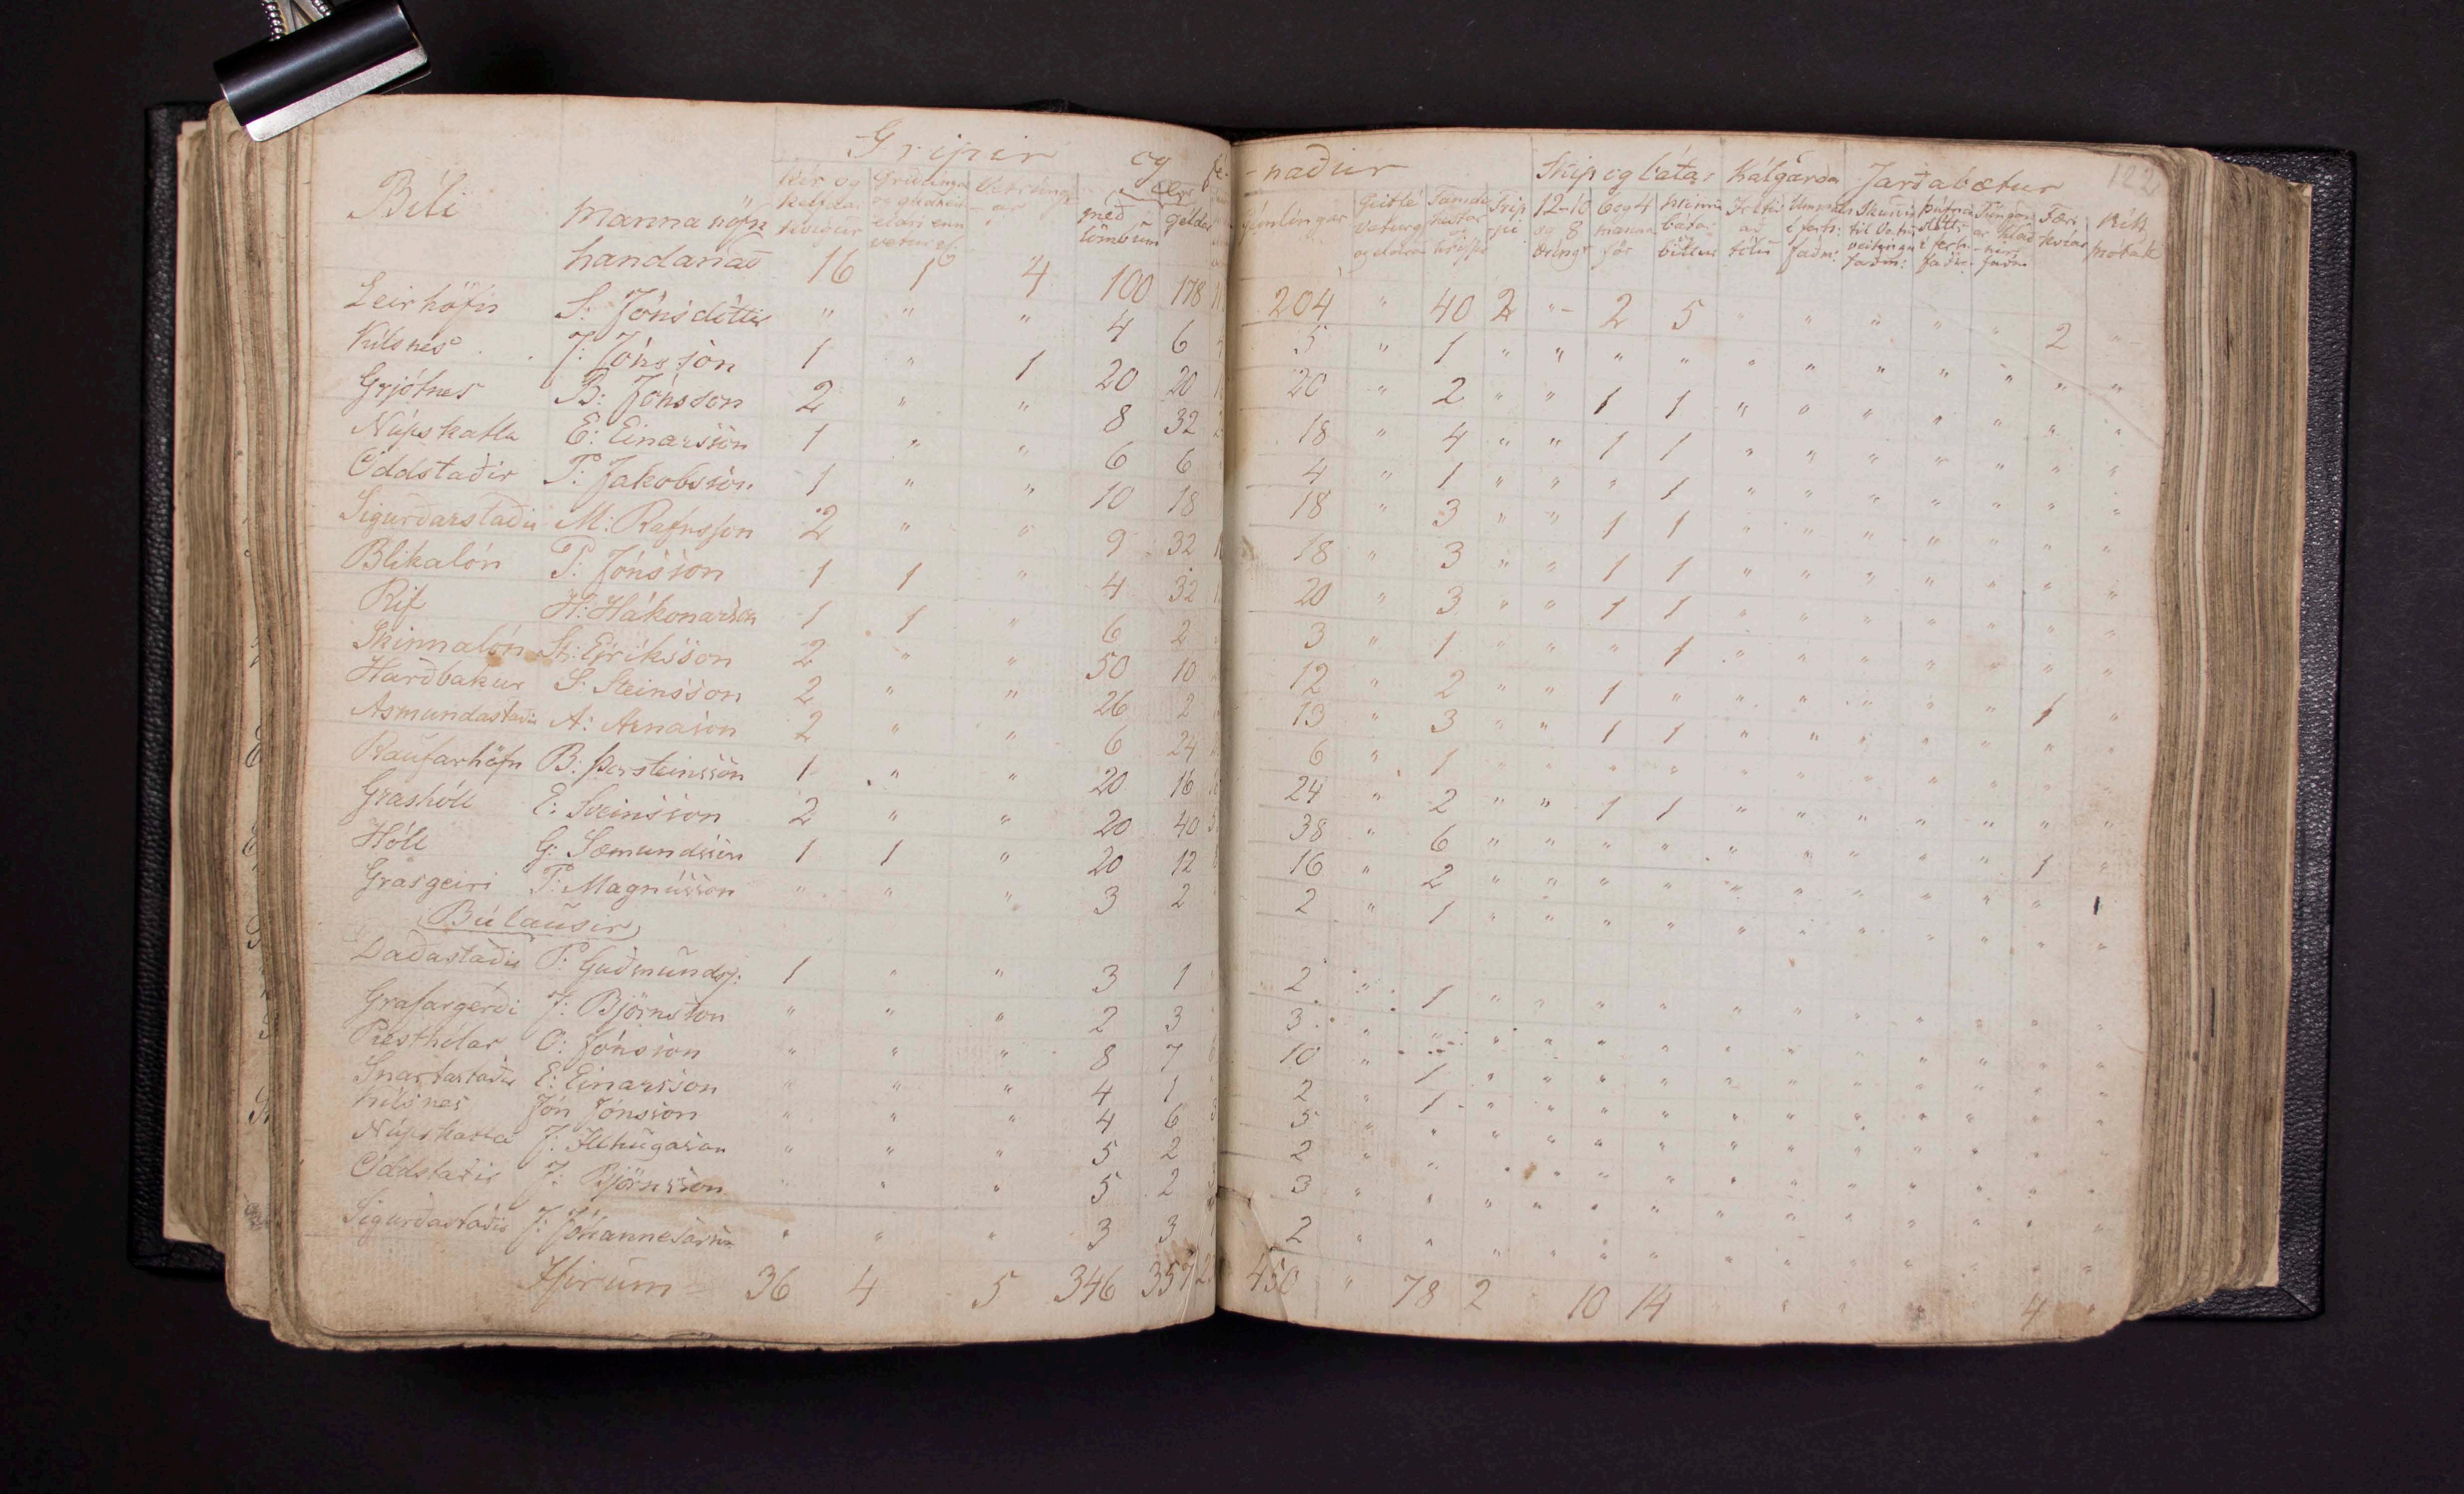 Gripir og fé- naður Skip og bátar Kálgarða Jarðabætur 122
Býli manna nöfn Kýr og kelfdar kvígur Griðúngar og geldneiti eldri enn veturg: Veturúngar með lömbum geldar Gémlíngar Geitfé veturg og eldra Tamdir hestar og hrossa Trippi 12-10 og 8 æringr 6 og 4 manna för minni báta byttur Tala fer: faðm: til vatns veitinga faðm: Færi kvíar mótak
handanað 16 1 4 100 178 204 " 40 2 " 2 5 " " " " " 2 "
Leirhöfn S: Jónsdóttir " " " 4 6 5 " 1 " " " " " " " " " " "
Kílsnes J: Jónsson 1 " 1 20 20 20 " 2 " " 1 1 " " " " " " "
Grjótnes B: Jónsson 2 " " 8 32 18 " 4 " " 1 1 " " " " " " "
Núpskatla E: Einarsson 1 " " 6 6 4 " 1 " " " 1 " " " " " " "
Oddstaðir P: Jakobsson 1 " " 10 18 18 " 3 " " 1 1 " " " " " " "
Sigurðarstaðir M: Rafnsson 2 " " 9 32 18 " 3 " " 1 1 " " " " " " "
Blikalón P: Jónsson 1 1 " 4 32 20 " 3 " " 1 1 " " " " " " "
Rif H: Hákonarson 1 1 " 6 2 3 " 1 " " " 1 " " " " " " "
Skinnalón St: Eyríksson 2 " " 50 10 12 " 2 " " 1 " " " " " " 1 "
Harðbakur S. Steinsson 2 " " 26 2 13 " 3 " " 1 1 " " " " " " "
Asmundastaðir A: Arnason 2 " " 6 24 6 " 1 " " " " " " " " " " "
Raufarhöfn B: Þorsteinsson 1 " " 20 16 24 " 2 " " 1 1 " " " " " " "
Grashóll E: Sveinsson 2 " " 20 40 38 " 6 " " " " " " " " " 1 "
Hóll G: Sæmundsson 1 1 " 20 12 16 " 2 " " " " " " " " " " 1
Grasgeiri P: Magnússon " " " 3 2 2 " 1 " " " " " " " " " " "
Búlausir
Daðastaðir P: Guðmundss: 1 " " 3 1 2 " 1 " " " " " " " " " " "
Grafargerði J: Björnsson " " " 2 3 3 " " " " " " " " " " " " "
Presthólar O: Jónsson " " " 8 7 10 " 1 " " " " " " " " " " "
Snartarstaðir E: Einarsson " " " 4 1 2 " 1 " " " " " " " " " " "
Kílsnes Jón Jónsson " " " 4 6 5 " " " " " " " " " " " " "
Núpskatla J: Illhugason " " " 5 2 2 " " " " " " " " " " " " "
Oddstaðir J: Björnsson " " 5 2 3 " " " " " " " " " " " " "
Sigurðastaðir J: Jóhannesarson " " " 3 3 2 " " " " " " " " " " " " "
Yfirum = 36 4 5 346 357 450 " 78 2 10 14 " " " " 4 "